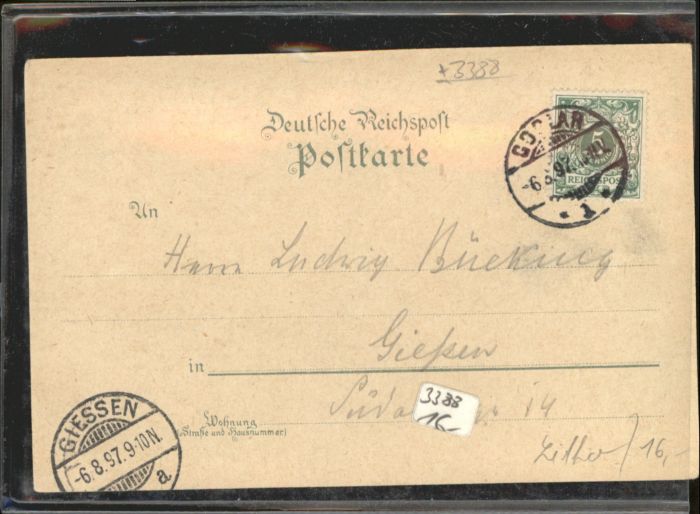 3388
Deutsche Reichspost
Postkarte
5
REICHSPOST
GOSLAR
-6.8.97
* 1 *
An
Herrn Ludwig Bücking
in Gießen
Wohnung
(Straße und Hausnummer)
14
3388
16,-
GIESSEN
-6.8.97.9-10N.
a
Zither/16,-